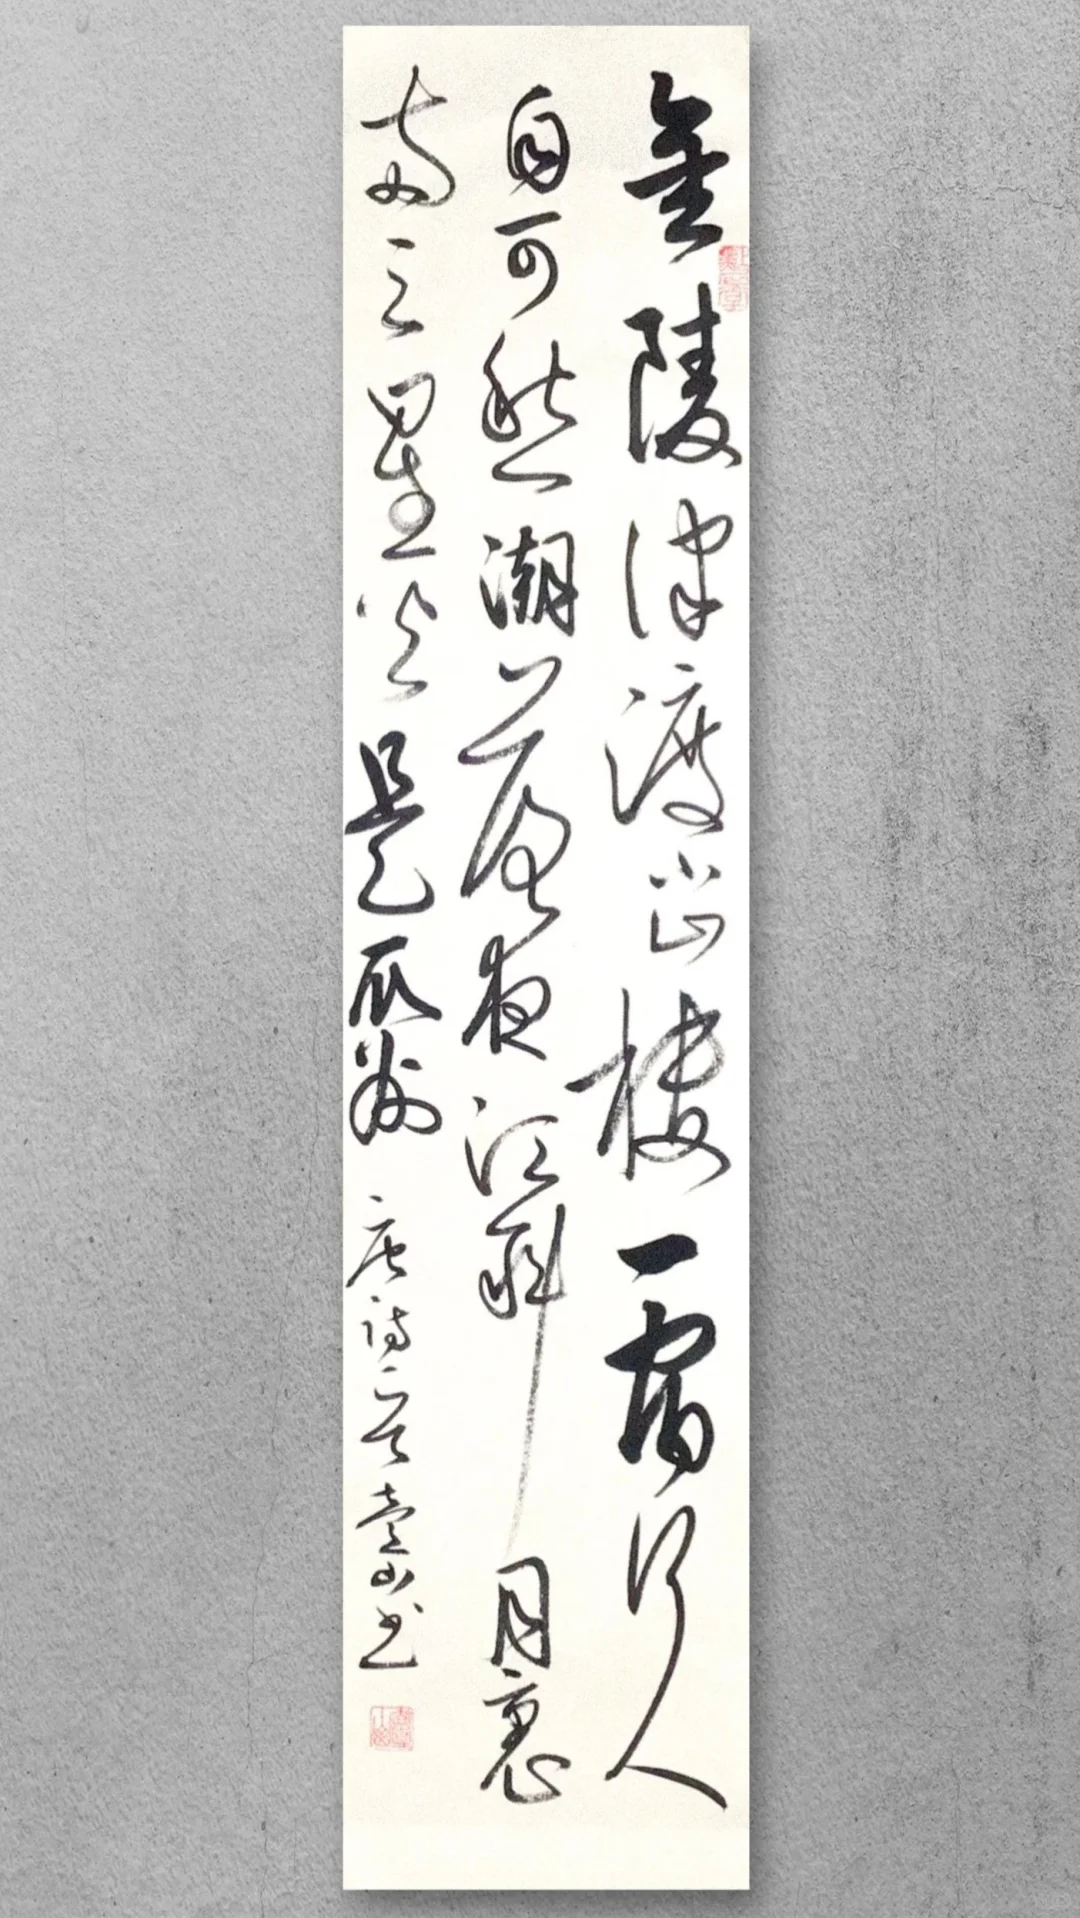 金陵津渡小山樓一宿行人
自可愁潮落夜江斜月裏
兩三星火是瓜州 唐詩一首 山书